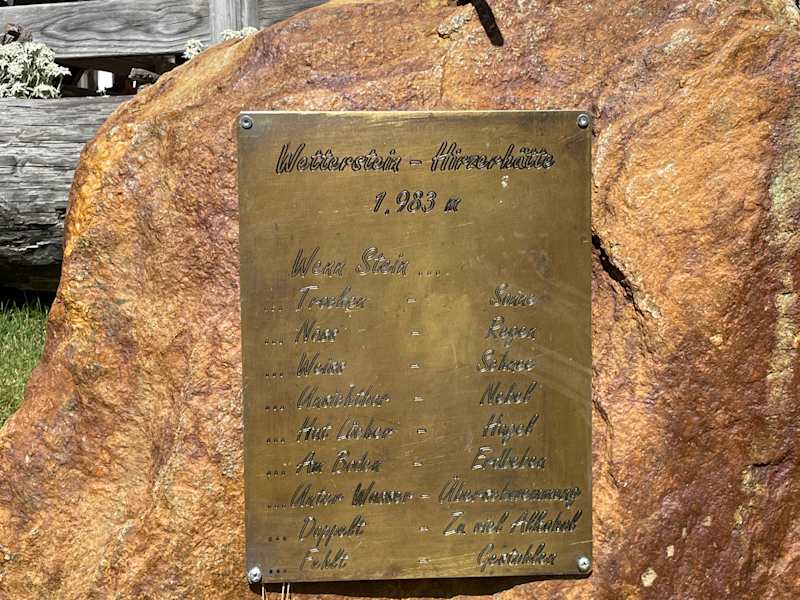 Wetterstein - Hirzerhütte
1.983 m
Wenn Stein ...
... Trocken - Sonne
... Nass - Regen
... Weiss - Schnee
... Unsichtbar - Nebel
... Hat Löcher - Hagel
... Am Boden - Erdbeben
... Unter Wasser - Überschwemmung
... Doppelt - Zu viel Alkohol
... Fehlt - Gestohlen